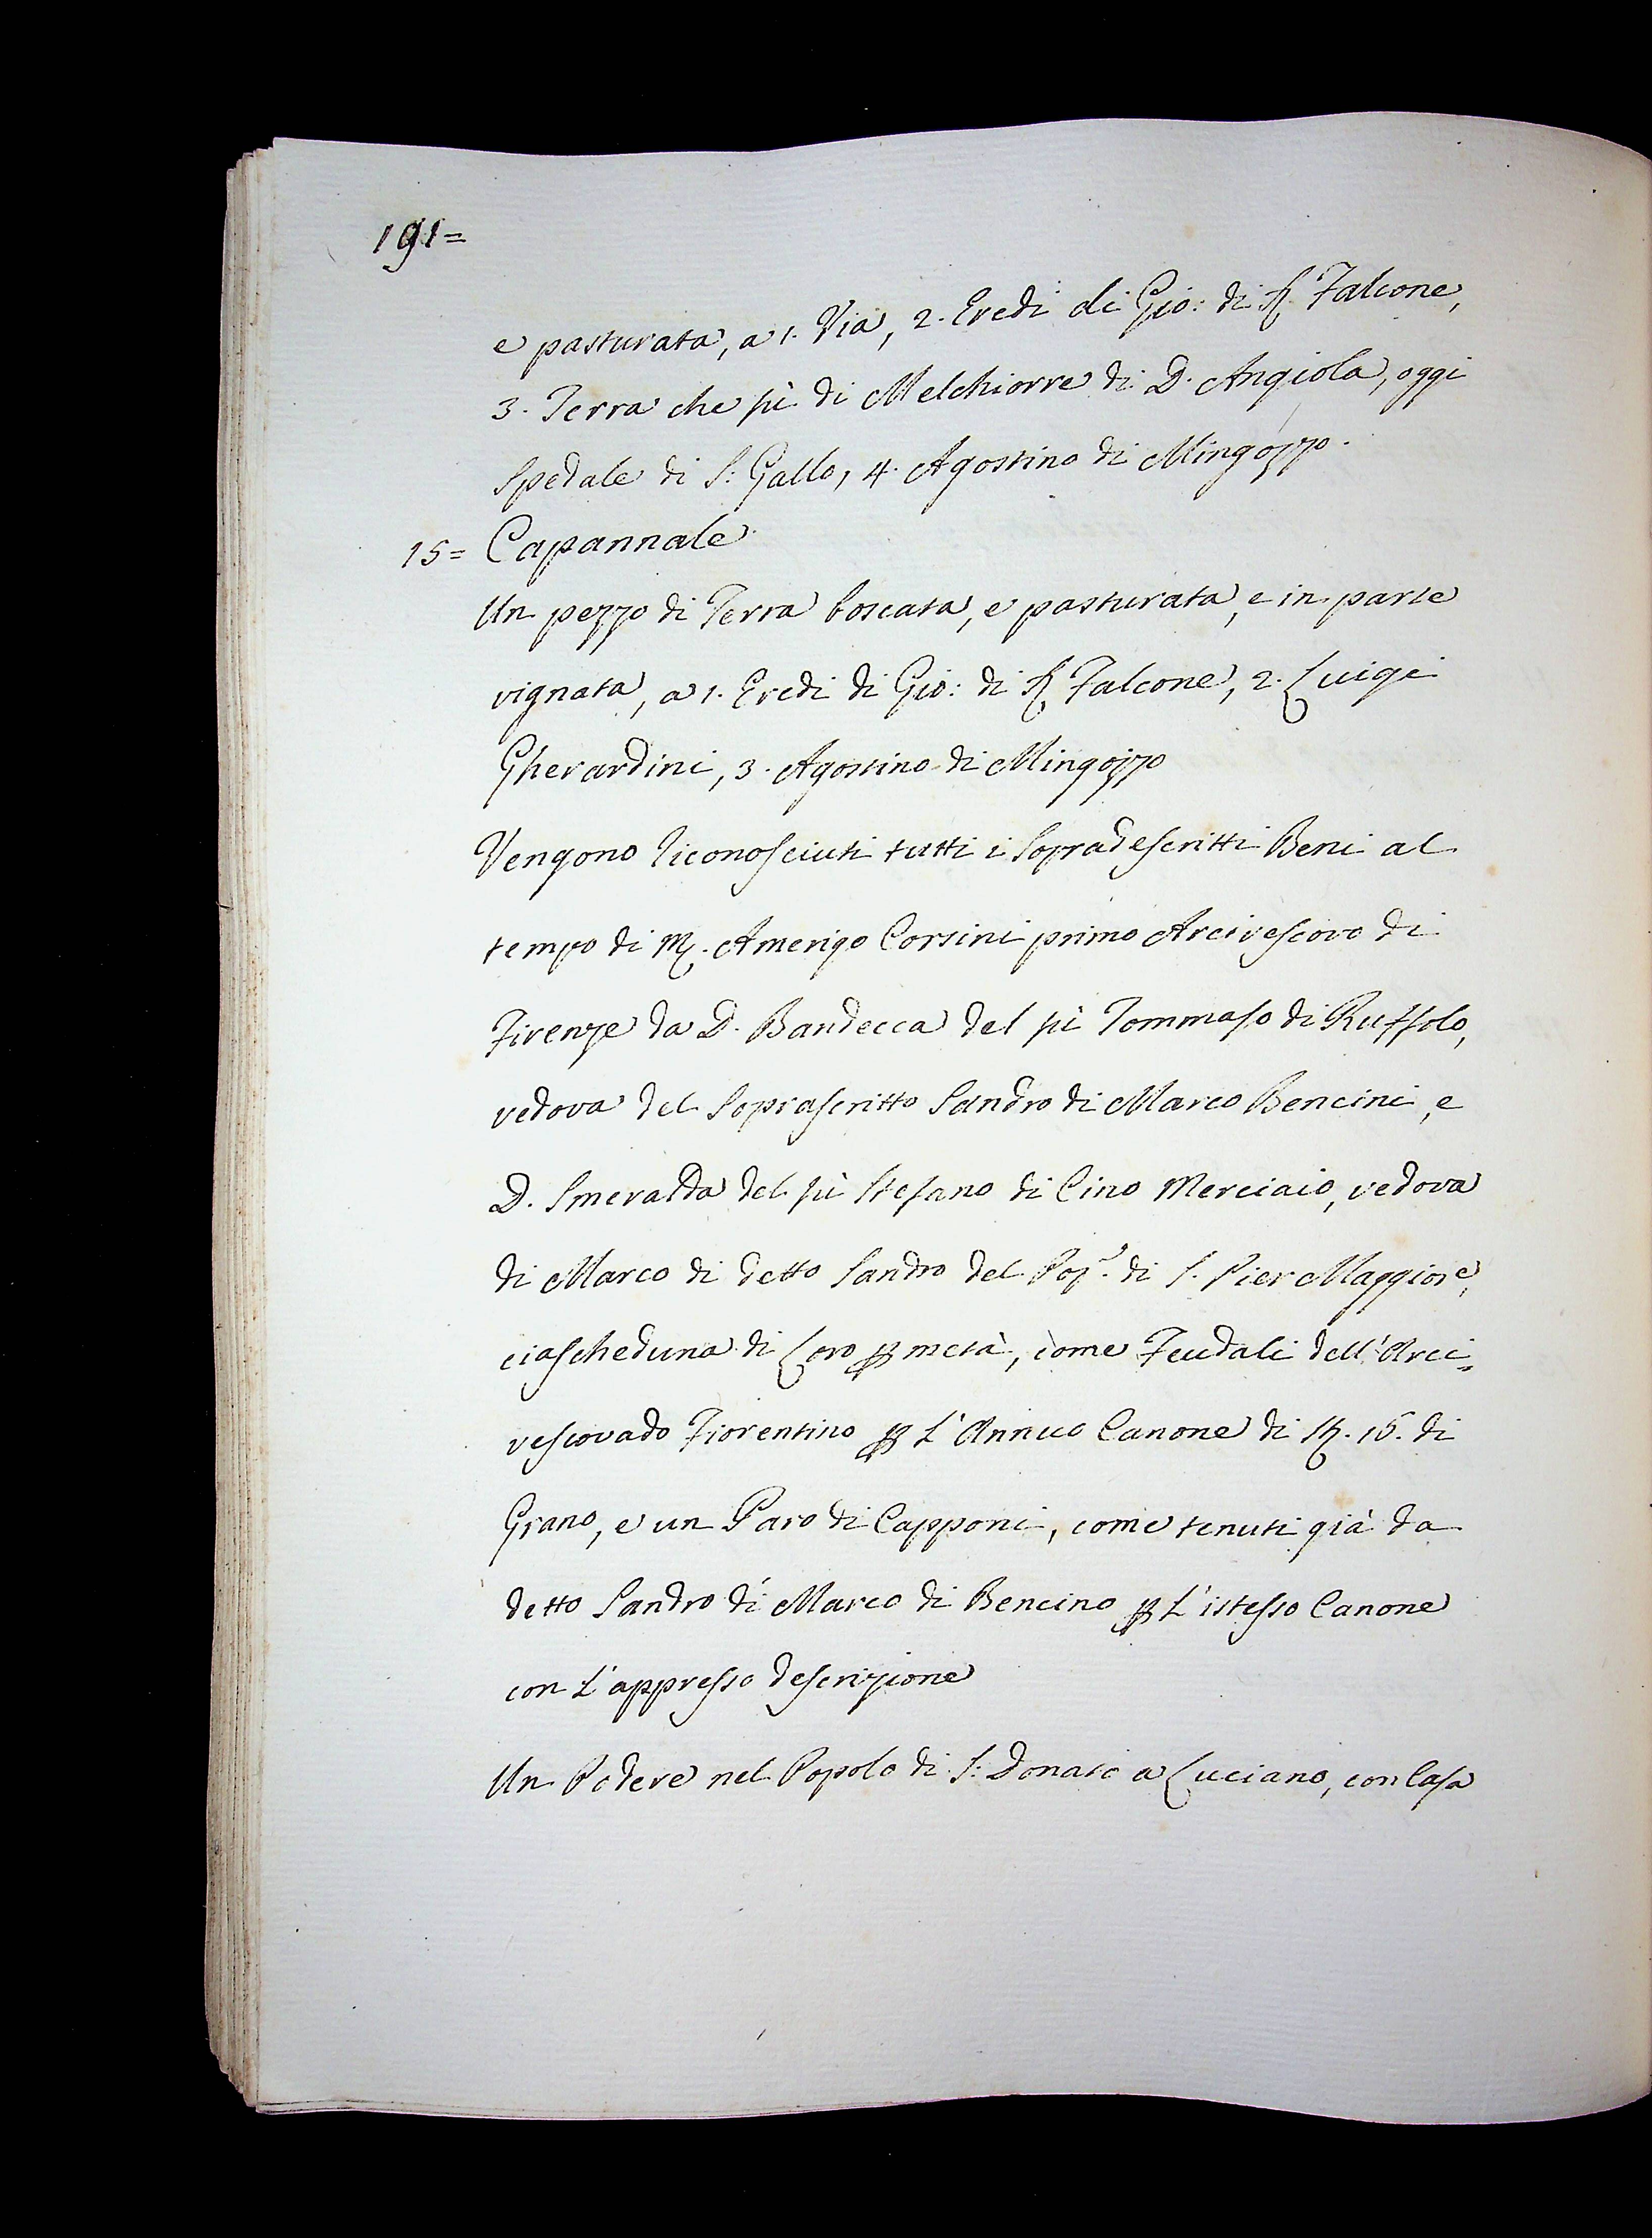 191=
e pasturata, a 1. Via, 2. Eredi di Gio: di Falcone,
3. Terra che fù di Melchiorre di D. Angiola, oggi
Spedale di S: Gallo, 4. Agostino di Mingozzo.
15= Capannale
Un pezzo di Terra boscata, e pasturata, e in parte
vignata, a 1. Eredi di Gio: di Falcone, 2. Luigi
Gherardini, 3. Agostino di Mingozzo
Vengono riconosciuti tutti i sopradescritti Beni al
tempo di M. Amerigo Corsini primo Arcivescovo di
Firenze da D. Bandecca del fù Tommaso di Ruffolo,
vedova del soprascritto Sandro di Marco Bencini, e
D. Smeralda del fù Stefano di Cino Merciaio, vedova
di Marco di detto Sandro del Pop.º di S. Pier Maggiore,
ciascheduna di Loro p metà, come Feudali dell'Arci=
vescovado Fiorentino p L'Annuo Canone di St. 15. di
Grano, e un Paro di Capponi, come tenuti già da
detto Sandro di Marco di Bencino p L'istesso Canone
con L'appresso descrizione
Un Podere nel Popolo di S: Donato a Luciano, con Casa